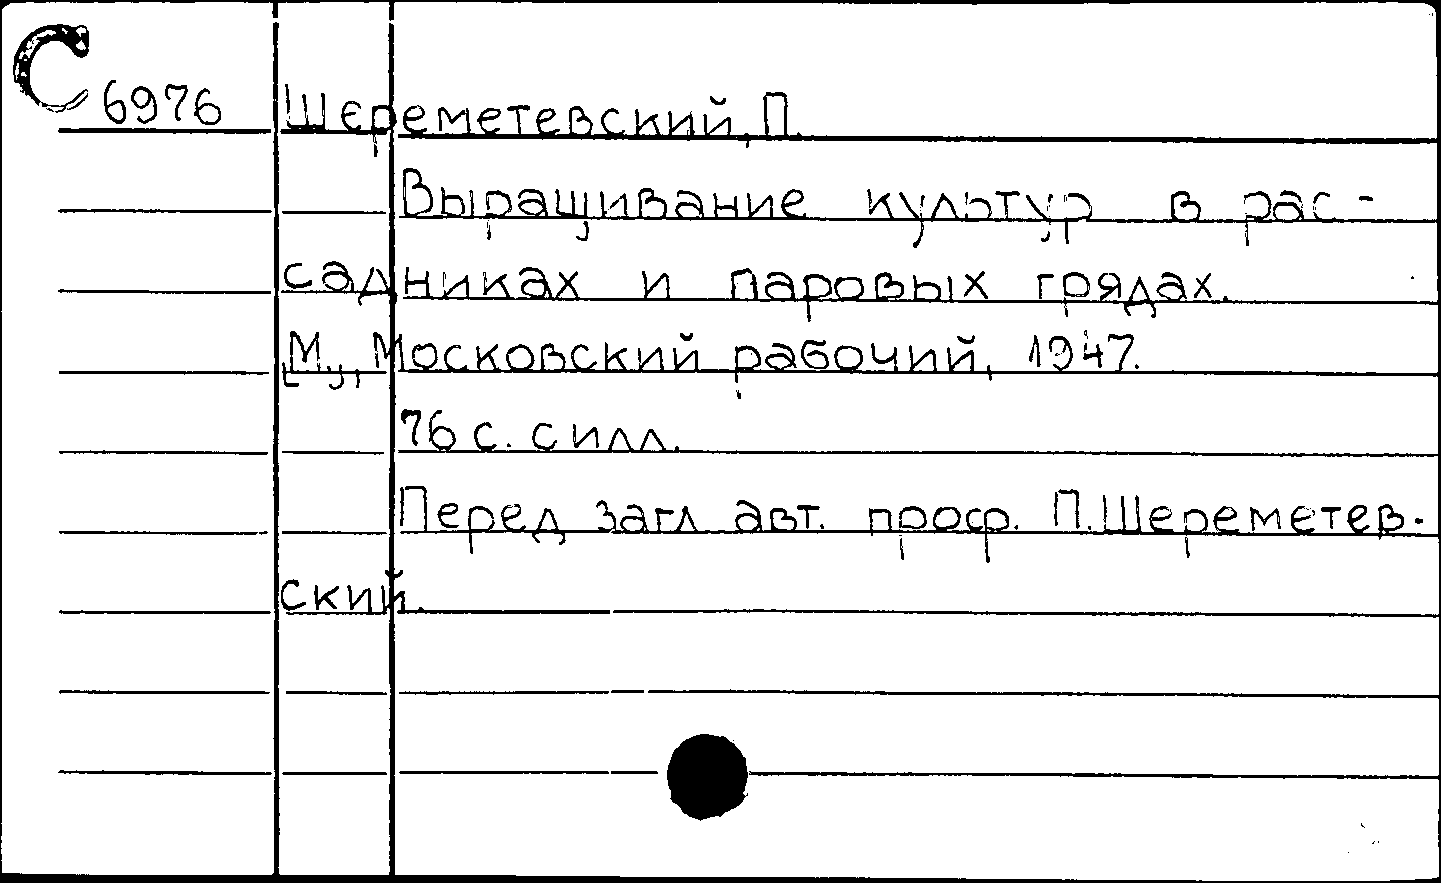 С 6976 Шереметевский, П.
Выращивание культур в рас-
садниках и паровых грядах.
[М.], Московский рабочий, 1947.
76 с. с илл.
Перед загл авт. проф. П. Шереметев-
ский.